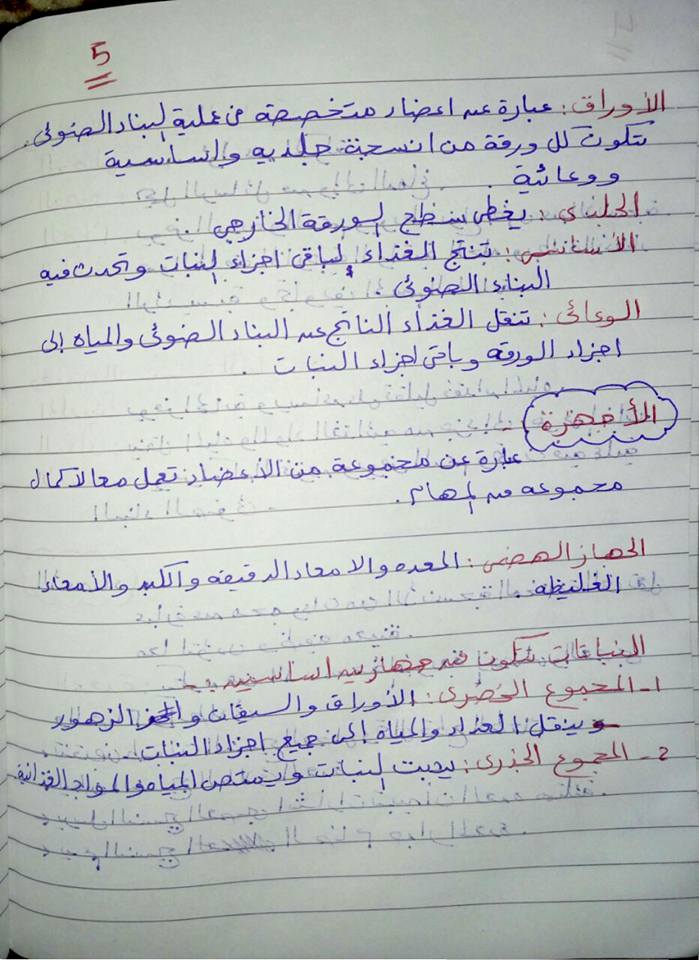 5
الأوراق: عبارة عن اعضاء متخصصة في عملية البناء الضوئي.
تتكون كل ورقة من انسجة جلديه واساسية
ووعائية.
الجلدي: يغطي سطح الورقة الخارجي.
الأساسي: تنتج الغذاء لباقي اجزاء النبات وتحدث فيه
البناء الضوئي.
الوعائي: تنقل الغذاء الناتج عن البناء الضوئي والمياه إلى
اجزاء الورقه وباقي اجزاء النبات.
الأجهزة
عبارة عن مجموعة من الأعضاء تعمل معا لاكمال
مجموعه من المهام.
الجهاز الهضمي: المعده والامعاء الدقيقه والكبد والأمعاء
الغليظه.
النباتات تتكون من جهازين اساسيين
1- المجموع الخضري: الأوراق والسيقان والزهور
وينقل الغذاء والمياه إلى جميع اجزاء النبات.
2- المجموع الجذري: يثبت النبات ويمتص المياه والمواد الغذائية